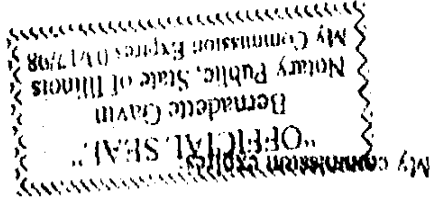 My commission expires:
"OFFICIAL SEAL"
Bernadette Gavin
Notary Public, State of Illinois
My Commission Expires 03/17/98